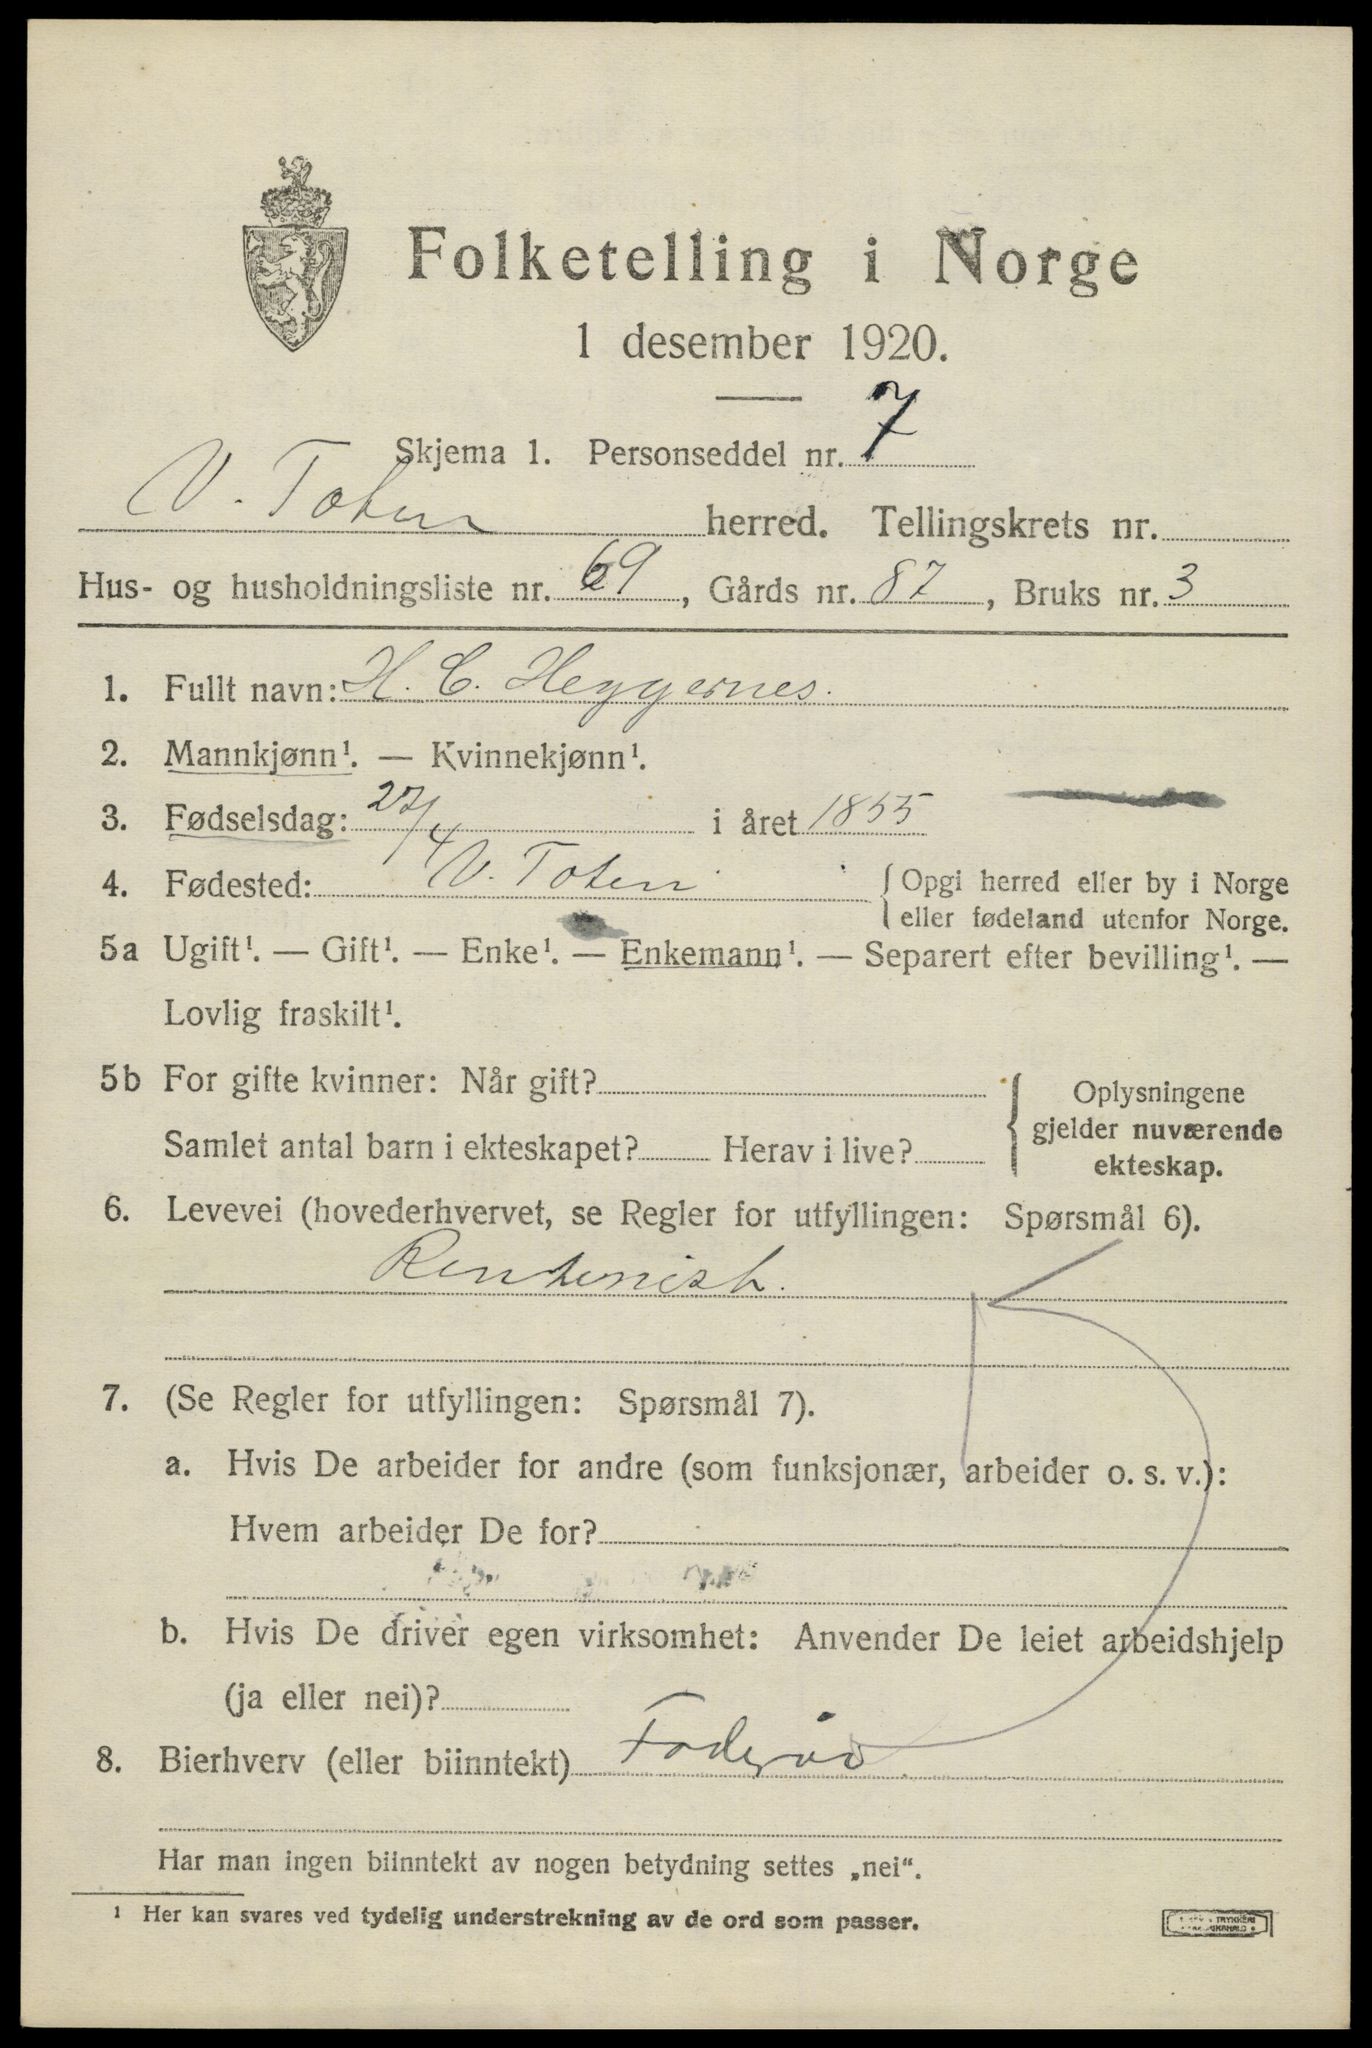 Folketelling i Norge
1 desember 1920.
Skjema 1. Personseddel nr. 7
V. Toten herred. Tellingskrets nr.
Hus- og husholdningsliste nr. 69, Gårds nr. 87, Bruks nr. 3
1. Fullt navn: H. C. Heggernes.
2. Mannkjønn¹. — Kvinnekjønn¹.
3. Fødselsdag: 27/4 i året 1855
4. Fødested: V. Toten { Opgi herred eller by i Norge
eller fødeland utenfor Norge.
5a Ugift¹. — Gift¹. — Enke¹. — Enkemann¹. — Separert efter bevilling¹. —
Lovlig fraskilt¹.
5b For gifte kvinner: Når gift?
Samlet antal barn i ekteskapet? Herav i live?
Oplysningene
gjelder nuværende
ekteskap.
6. Levevei (hovederhvervet, se Regler for utfyllingen: Spørsmål 6).
Rentenist.
7. (Se Regler for utfyllingen: Spørsmål 7).
a. Hvis De arbeider for andre (som funksjonær, arbeider o. s. v.):
Hvem arbeider De for?
b. Hvis De driver egen virksomhet: Anvender De leiet arbeidshjelp
(ja eller nei)?
8. Bierhverv (eller biinntekt)
Har man ingen biinntekt av nogen betydning settes „nei“.
¹ Her kan svares ved tydelig understrekning av de ord som passer.